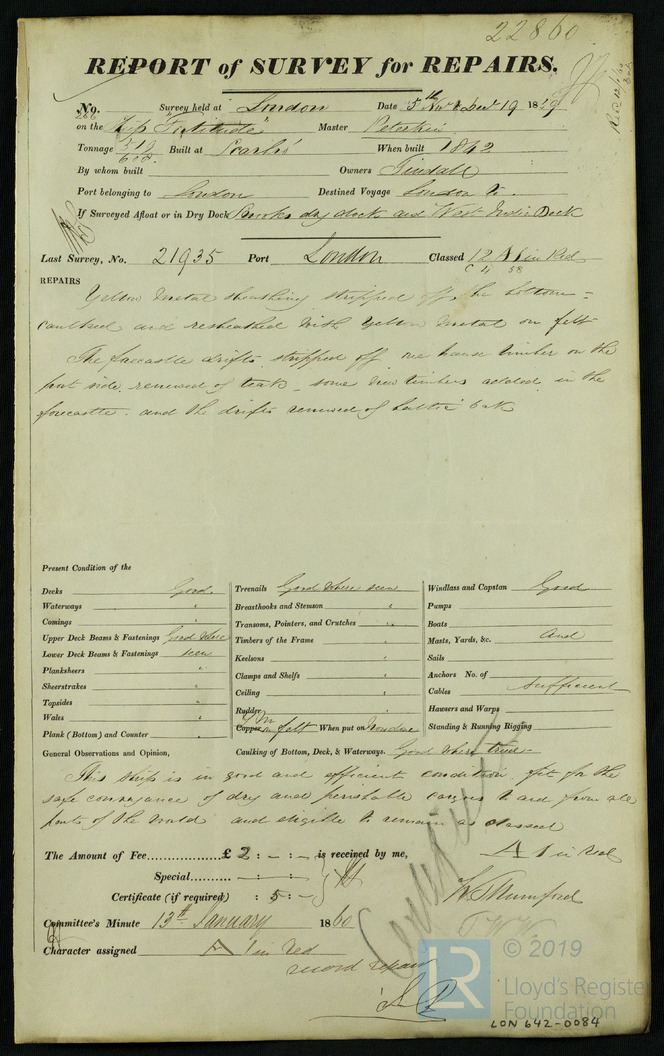 22860
REPORT of SURVEY for REPAIRS.
No. 266 Survey held at London Date 5th Nov & Dec 19 1859
on the Ship "Fortitude" Master Peterkin
Tonnage Built at When built 1842
By whom built Owners Tindall
Port belonging to London Destined Voyage London to
If Surveyed Afloat or in Dry Dock Brooks dry dock and West India Dock
Last Survey, No. 21935 Port London Classed 12 A1 in Red
C 4 58
REPAIRS
Yellow metal sheathing stripped off the bottom =
caulked and resheathed with yellow metal on felt
The forecastle drifts stripped off one hause timber on the
port side renewed of teak, some new timbers added in the
forecastle and the drifts renewed of Baltic Oak
Present Condition of the
Decks Good.
Waterways "
Comings "
Upper Deck Beams & Fastenings Good where
Lower Deck Beams & Fastenings seen
Planksheers "
Sheerstrakes "
Topsides "
Wales "
Plank (Bottom) and Counter "
Treenails Good where seen
Breasthooks and Stemson "
Transoms, Pointers, and Crutches "
Timbers of the Frame "
Keelsons "
Clamps and Shelfs "
Ceiling "
Rudder
Copper Y M on felt When put on Now done
Windlass and Capstan Good
Pumps
Boats
Masts, Yards, &c. and
Sails
Anchors No. of
Cables Sufficient
Hawsers and Warps
Standing & Running Rigging
General Observations and Opinion, Caulking of Bottom, Deck, & Waterways. Good where tried
This ship is in good and efficient condition fit for the
safe conveyance of dry and perishable cargoes to and from all
parts of the World and eligible to remain as classed
A 1 in red
The Amount of Fee £ 2 : - : - is received by me,
Special - : - : -
Certificate (if required) : 5 : -
W Mumford
Committee's Minute 13th January 1860
Character assigned A 1 in red
record repairs
© 2019
LR
Lloyd's Register
Foundation
LON 642-0084